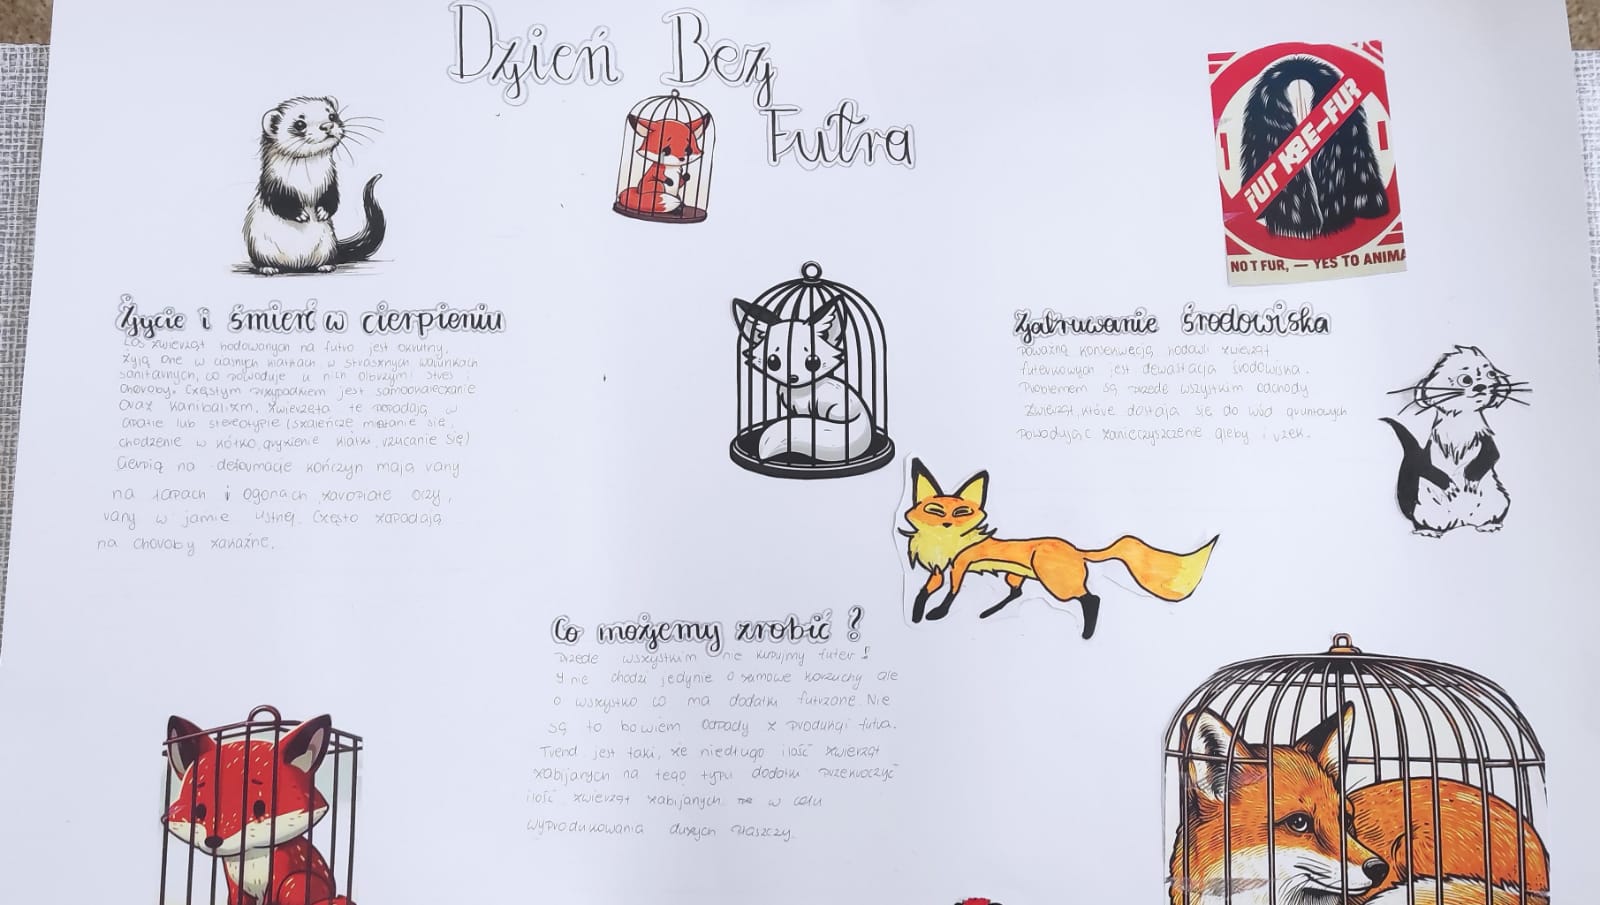 Dzień Bez
Futra
FUR KEE-FUR
NOT FUR, — YES TO ANIMA
Życie i śmierć w cierpieniu
Los zwierząt hodowanych na futro jest okrutny.
Żyją one w ciasnych klatkach w strasznych warunkach
sanitarnych, co powoduje u nich olbrzymi stres i
choroby. Częstym przypadkiem jest samookaleczanie
oraz kanibalizm. Zwierzęta te popadają w
apatie lub stereotypie (szaleńcze miotanie się,
chodzenie w kółko, gryzienie klatki, rzucanie się)
Cierpią na deformacje kończyn mają rany
na łapach i ogonach zaropiałe oczy,
rany w jamie ustnej. Często zapadają
na choroby zakaźne.
Zatruwanie środowiska
Poważną konsekwęcją hodowli zwierząt
futerkowych jest dewastacja środowiska.
Problemem są przede wszystkim odchody
zwierząt, które dostają się do wód gruntowych
powodując zanieczyszczenie gleby i rzek.
Co możemy zrobić ?
Przede wszystkim nie kupujmy futer !
I nie chodzi jedynie o zimowe korzuchy ale
o wszystko co ma dodatki futrzane. Nie
są to bowiem odpady z produkcji futra.
Trend jest taki, że niedługo ilość zwierząt
zabijanych na tego typu dodatki przekroczyć
ilość zwierząt zabijanych w celu
wyprodukowania dużych płaszczy.